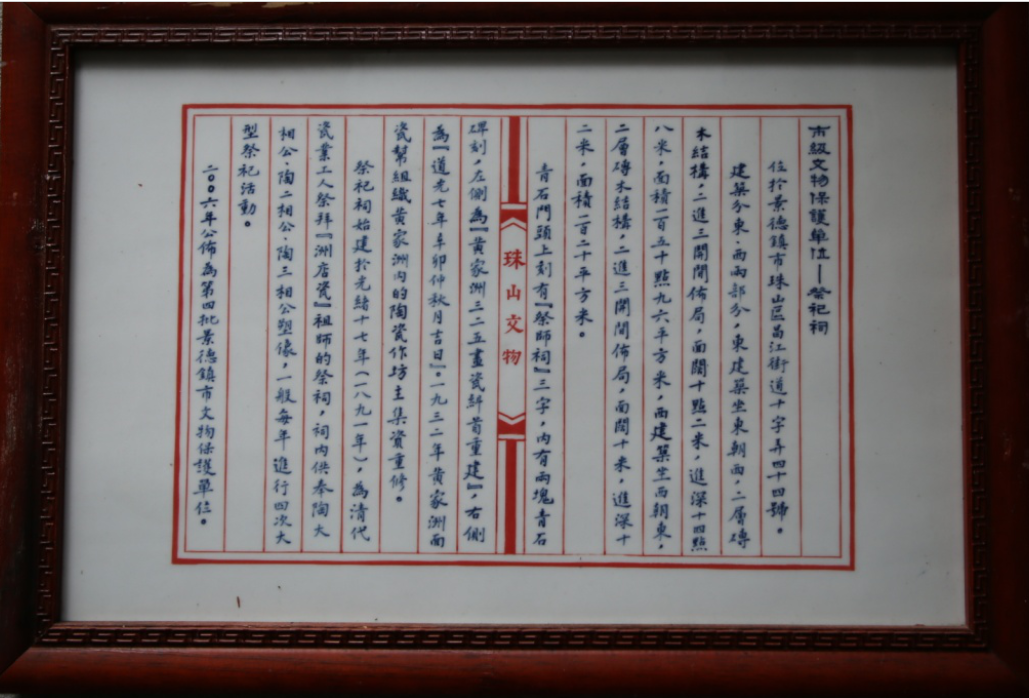 市級文物保護單位—祭祀祠
位於景德鎮市珠山區昌江街道十字弄四十四號。
建築分東、西兩部分，東建築坐東朝西，二層磚
木結構，二進三開間佈局，面闊十點二米，進深十四點
八米，面積一百五十點九六平方米，西建築坐西朝東，
二層磚木結構，二進三開間佈局，面闊十米，進深十
二米，面積一百二十平方米。
青石門頭上刻有『祭師祠』三字，内有兩塊青石
珠山文物
碑刻，左側為『黃家洲三二五畫瓷 首重建』，右側
為『道光七年 卯仲秋月吉日』。一九三二年黃家洲面
瓷幫組織黃家洲内的陶瓷作坊主集資重修。
祭祀祠始建於光緒十七年（一八九一年），為清代
瓷業工人祭拜『洲店瓷』祖師的祭祠，祠内供奉陶大
相公、陶二相公、陶三相公塑像，一般每年進行四次大
型祭祀活動。
二00六年公佈為第四批景德鎮市文物保護單位。